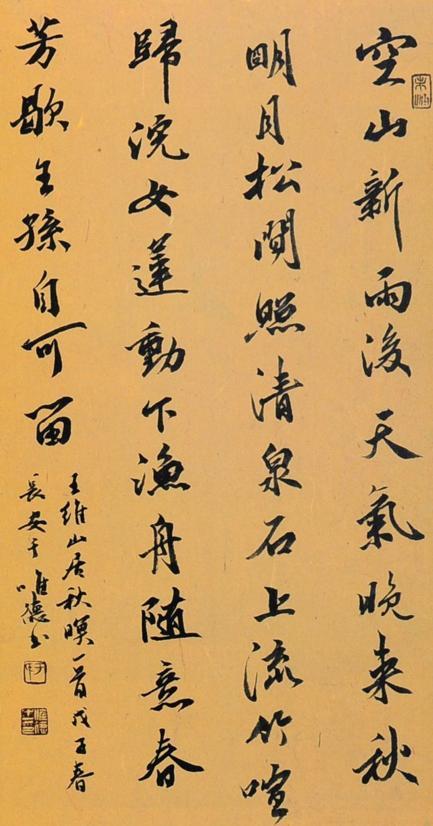 空山新雨後天氣晚來秋
明月松間照清泉石上流竹喧
歸浣女蓮動下漁舟隨意春
芳歇王孫自可留
王維山居秋暝一首戊子春
長安于唯德书